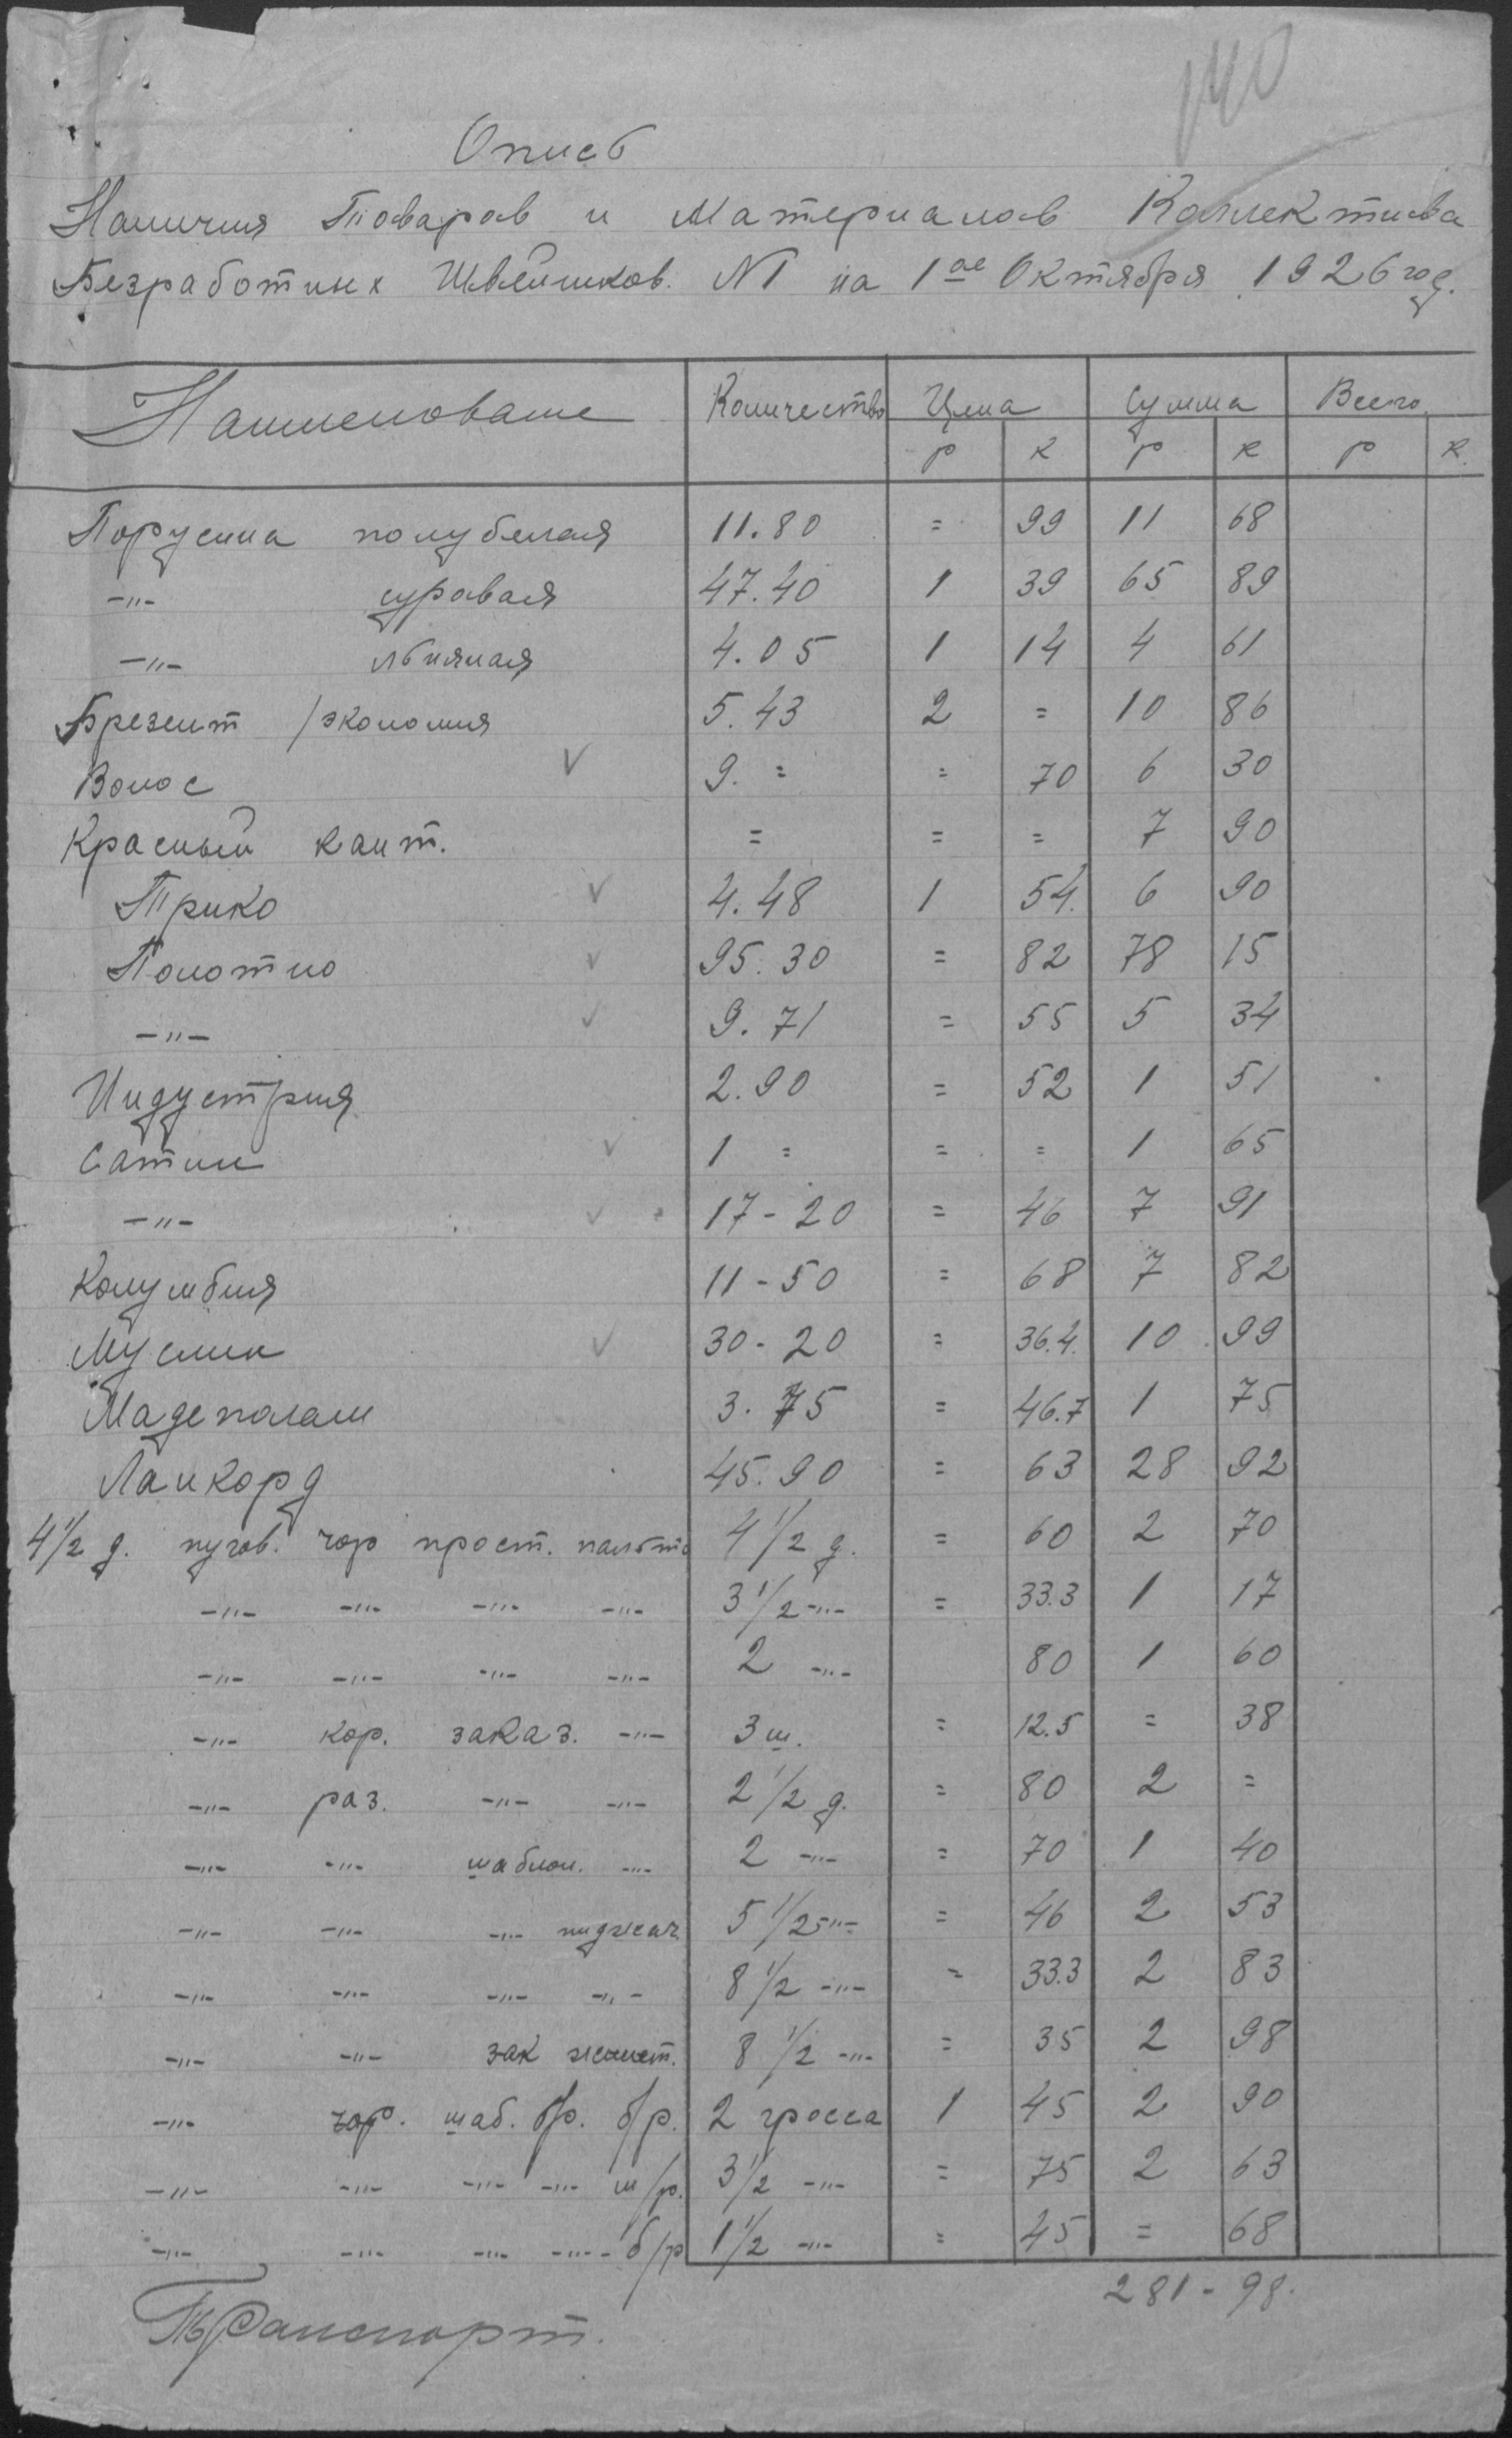 140
Опись
Наличия Товаров и Материалов Коллектива
Безработных Швейников. N1 на 1ое Октября 1926 год.
Наименование Количество Цена Сумма Всего
р к р к р к.
Парусина полубелая 11.80 = 99 11 68
-"- суровая 47.40 1 39 65 89
-"- льняная 4.05 1 14 4 61
Брезент /экономия 5.43 2 = 10 86
Волос √ 9. = = 70 6 30
Красный кант. = = = 7 90
Трико √ 4.48 1 54. 6 90
Полотно √ 95.30 = 82 78 15
-"- √ 9.71 = 55 5 34
Индустрия 2.90 = 52 1 51
Сатин √ 1 = = = 1 65
-"- √ 17-20 = 46 7 91
Колумбия 11-50 = 68 7 82
Муслин √ 30-20 = 36.4. 10 99
Мадеполам 3.75 = 46.7 1 75
Ланкорд 45.90 = 63 28 92
4 1/2 д. пугов. чор прост. пальто 4 1/2 д. = 60 2 70
-"- -"- -"- -"- 3 1/2 -"- = 33.3 1 17
-"- -"- -"- -"- 2 -"- 80 1 60
-"- кор. заказ. -"- 3 ш. = 12.5 = 38
-"- раз. -"- -"- 2 1/2 д. = 80 2 =
-"- -"- шаблон. -"- 2 -"- = 70 1 40
-"- -"- -"- пиджач. 5 1/2 -"- = 46 2 53
-"- -"- -"- -"- 8 1/2 -"- = 33.3 2 83
-"- -"- зак жилет. 8 1/2 -"- = 35 2 98
-"- чор. шаб. бр. б/р. 2 гросса 1 45 2 90
-"- -"- -"- -"- ш/р. 3 1/2 -"- = 75 2 63
-"- -"- -"- -"- б/р 1 1/2 -"- = 45 = 68
281-98.
Транспорт.